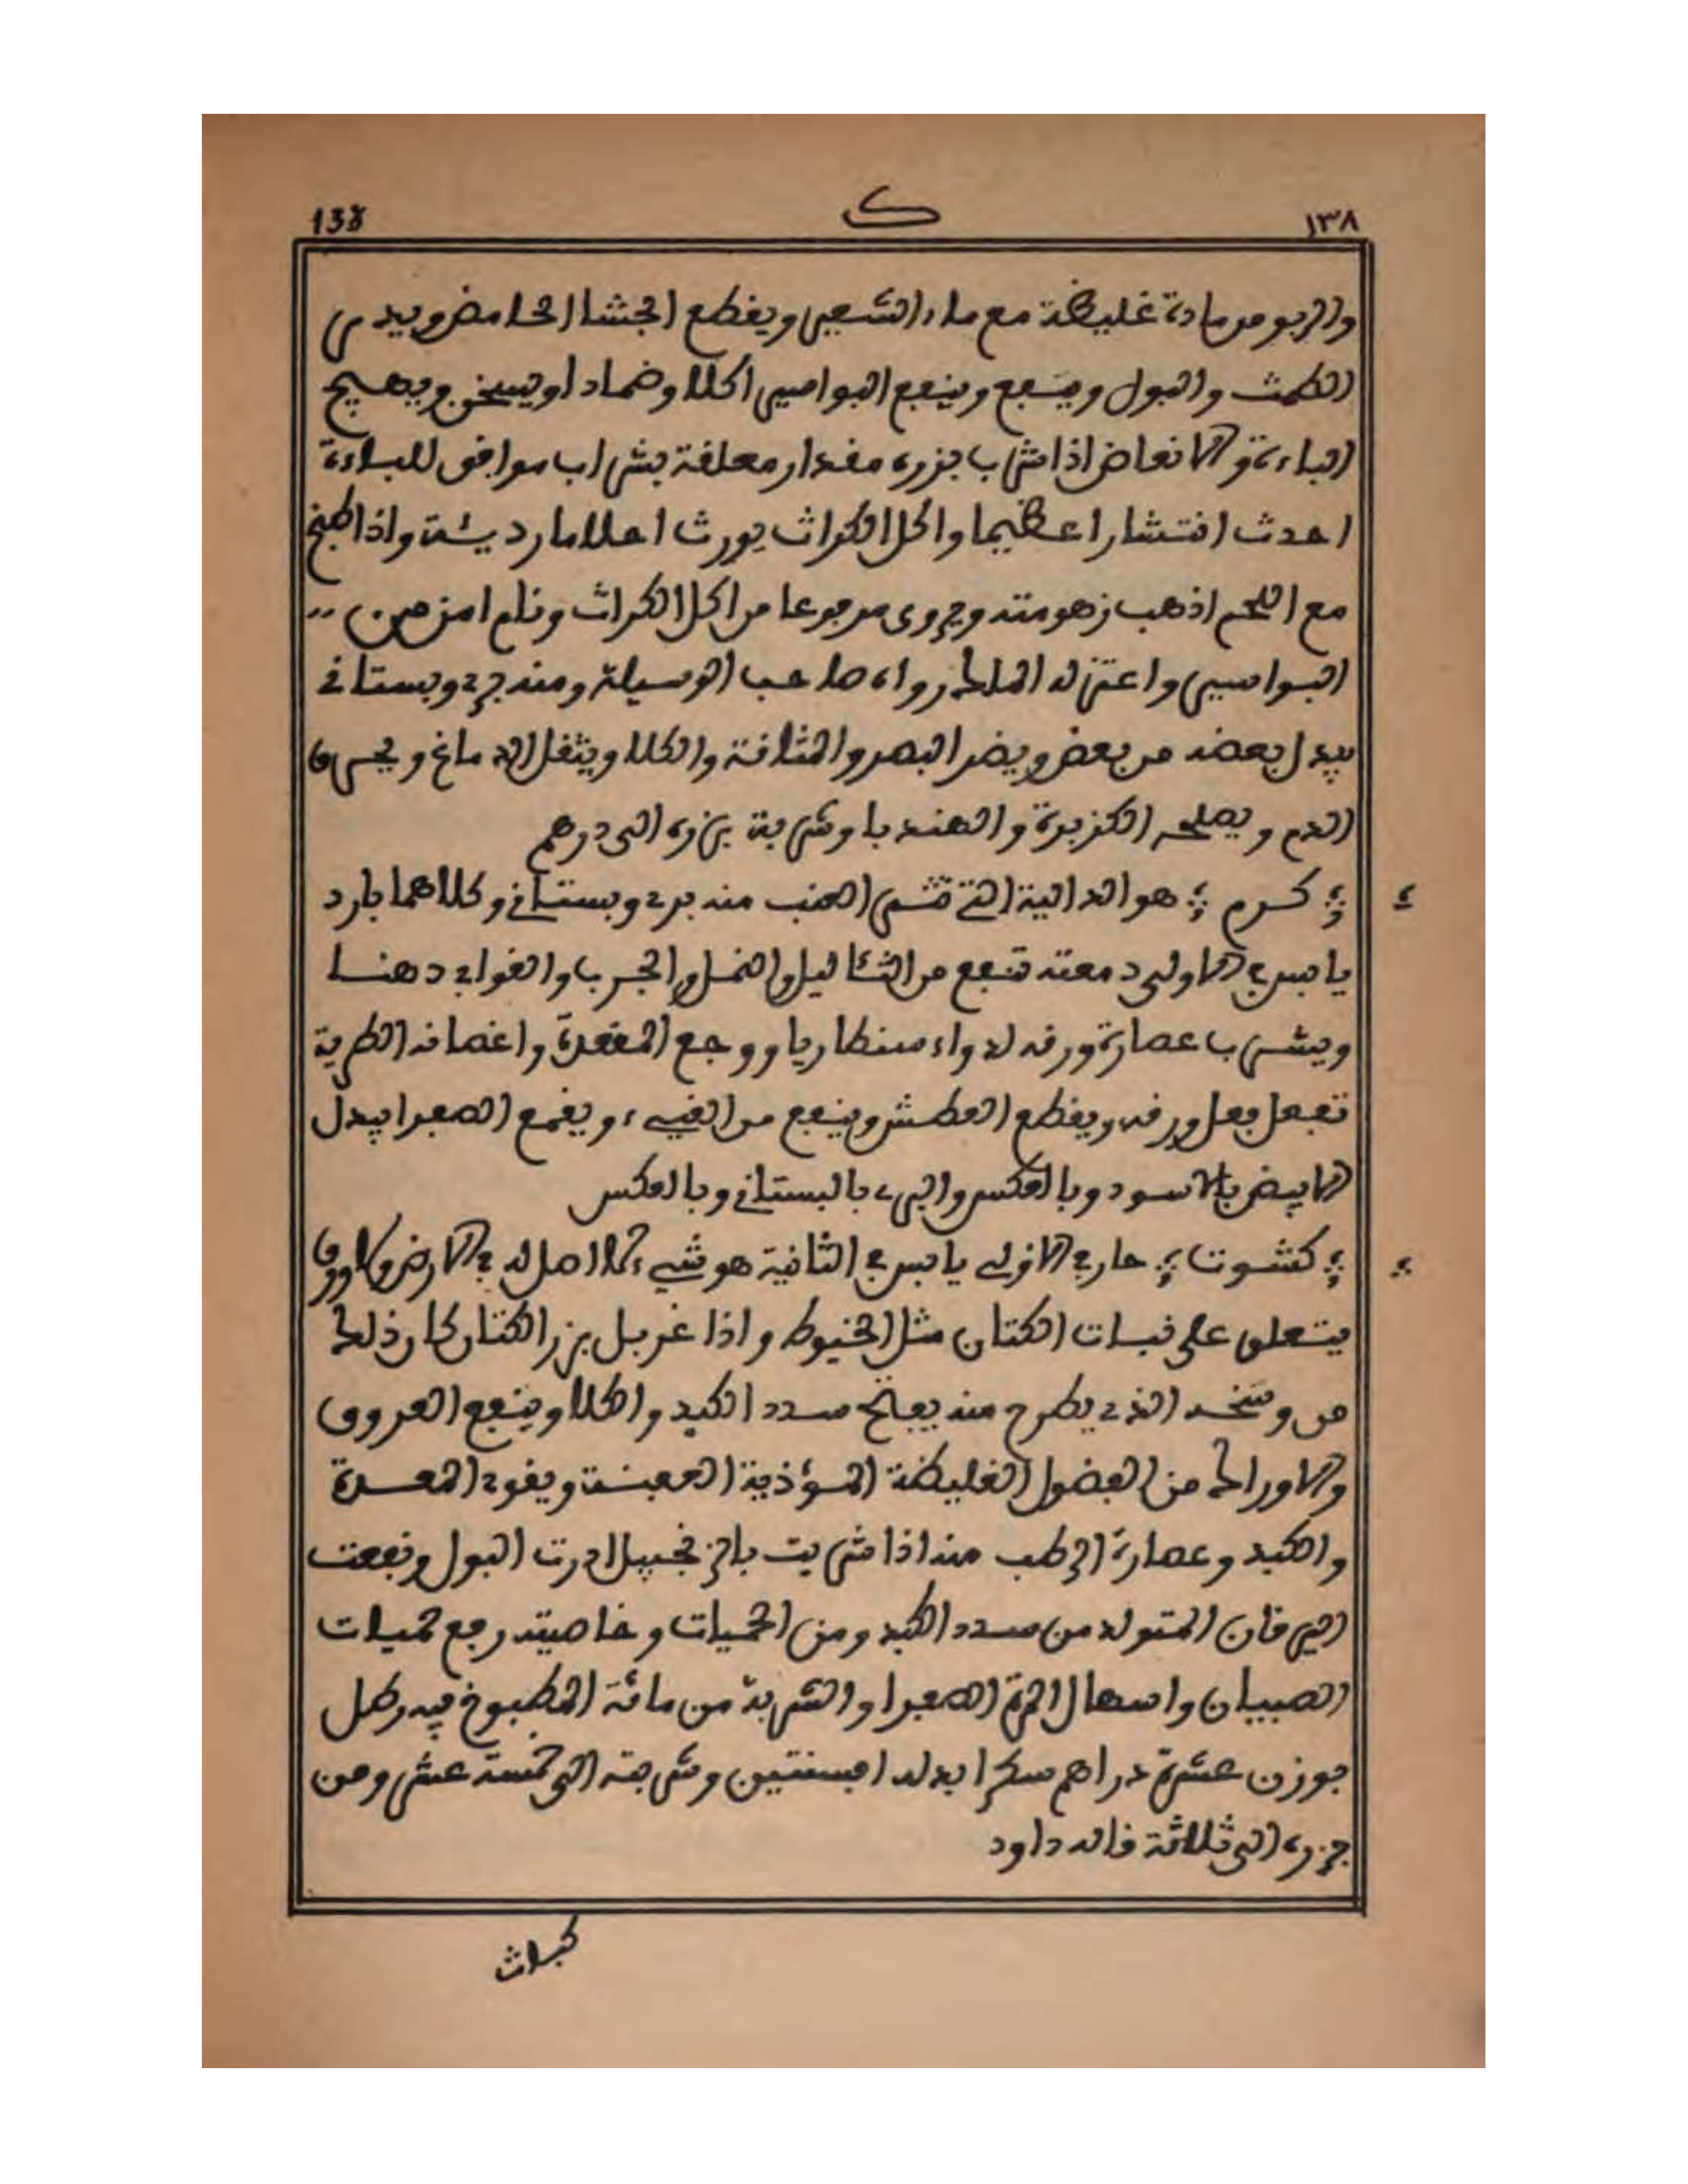 138 ك ١٣٨
والربو من مادة غليظة مع ماء الشعير ويقطع الجشا الحامض ويدر
الطمث والبول وينفع وينفع البواسير اكلا وضمادا ويسخن ويهيج
الباءة والانعاض اذا شرب بزره مقدار معلقة بشراب موافق للباءة
احدث انتشارا عظيما واكل الكراث يورث احلاما رديئة واذا طبخ
مع اللحم اذهب زهومته ويروى مرفوعا من اكل الكراث ونام امن من
البواسير واعتزله الملك رواه صاحب الوسيلة ومنه بري وبستاني
يبدل بعضه من بعض ويضر البصر والمثانة والكلا ويثقل الدماغ ويحرق
الدم ويصلحه الكزبرة والهندبا وشربة بزره الى درهم
كرم هو الدالية التي تثمر العنب منه بري وبستاني وكلاهما بارد
يابس في الاولى دمعته تنفع من الثئاليل والنمل والجرب والقوابي دهنا
ويشرب عصارة ورقه لدواء سنطاريا ووجع المقعدة واغصانه الطرية
تفعل فعل ورقه ويقطع العطش وينفع من القيء ويقمع الصفرا يبدل
الابيض بالاسود وبالعكس والبري بالبستاني وبالعكس
كشوت حار في الاولى يابس في الثانية هو شيء لا اصل له في الارض ولا ورق
يتعلق على نبات الكتان مثل الخيوط واذا غربل بزر الكتان كان ذلك
من وسخه الذي يطرح منه يفتح سدد الكبد والكلا وينفع العروق
والاوراك من الفضول الغليظة المؤذية العفنة ويقوي المعدة
والكبد وعصارة الرطب منه اذا شربت بالزنجبيل ادرت البول ونفعت
اليرقان المتولد من سدد الكبد ومن الحميات وخاصيته رفع حميات
الصبيان واسهال المرة الصفرا والشربة من مائه المطبوخ فيه رطل
بوزن عشرة دراهم سكرا بدله افسنتين وشربته الى خمسة عشر ومن
بزره الى ثلاثة قاله داود
كباث